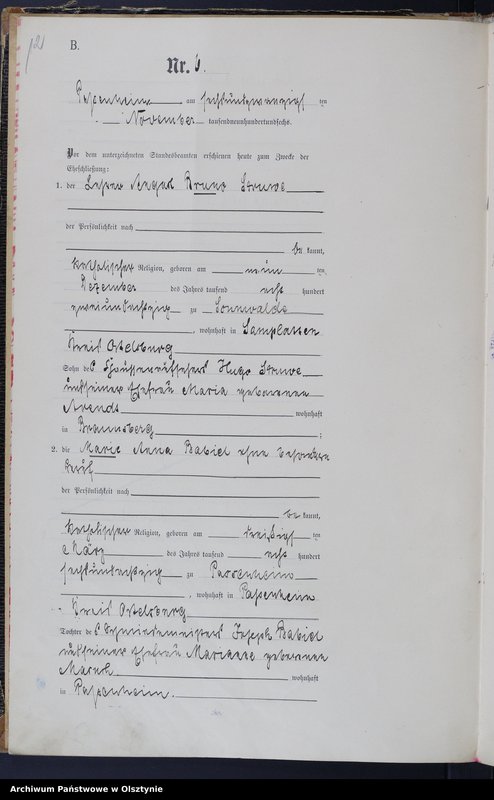 12
B.
Nr. 6.
Passenheim, am sechsundzwanzigs ten
November tausendneunhundertundsechs.
Vor dem unterzeichneten Standesbeamten erschienen heute zum Zwecke der
Eheschließung:
1. der Lehrer August Bruno Struwe
der Persönlichkeit nach
be kannt,
katholischer Religion, geboren am neun ten
Dezember des Jahres tausend acht hundert
zweiundachtzig zu Sonnwalde
, wohnhaft in Samplatten
Kreis Ortelsburg
Sohn des Hugo Struwe
und seiner Ehefrau Maria geborenen
Arendt wohnhaft
in Braunsberg ;
2. die Marie Anna Babiel ohne besonderen
Beruf
der Persönlichkeit nach
be kannt,
katholischer Religion, geboren am dreißigs ten
März des Jahres tausend acht hundert
sechsundachtzig zu Passenheim
, wohnhaft in Passenheim
Kreis Ortelsburg
Tochter des Schmiedemeisters Joseph Babiel
und seiner Ehefrau geborenen
wohnhaft
in Passenheim.
Archiwum Państwowe w Olsztynie